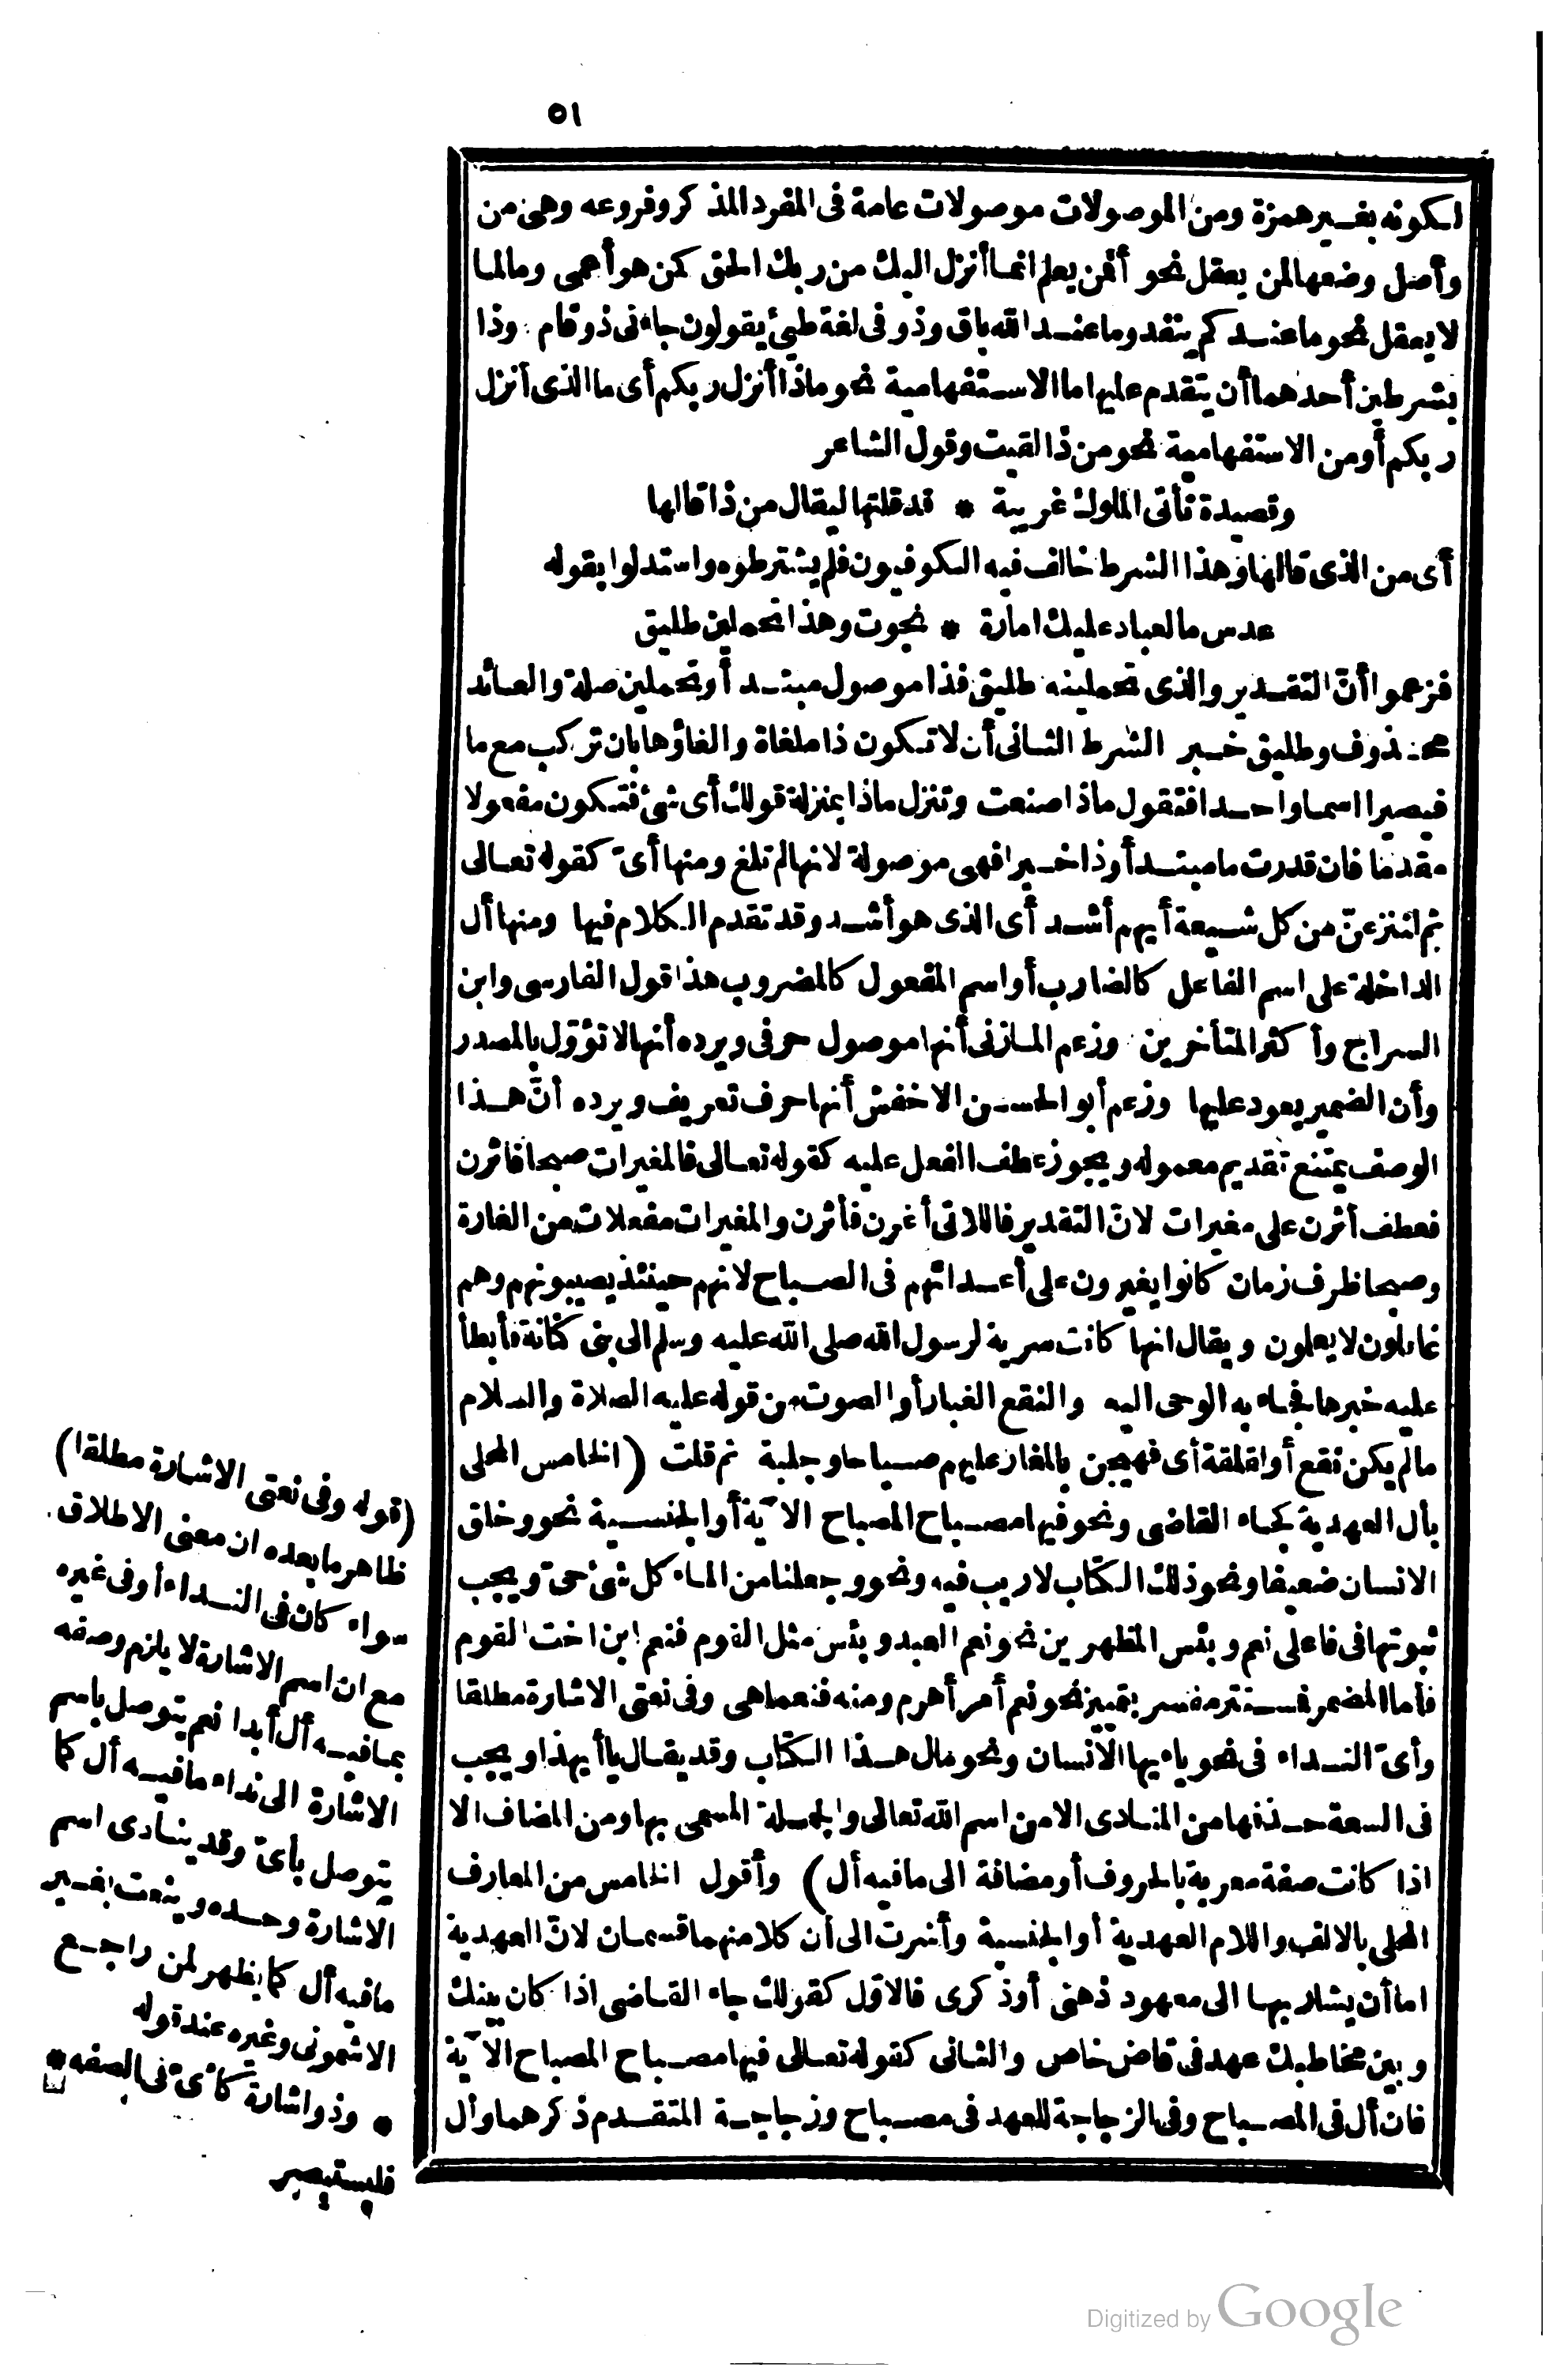 ٥١
لكونه بغير همزة ومن الموصولات موصولات عامة فى المفرد المذكر وفروعه وهى من
وأصل وضعها لمن يعقل نحو أفمن يعلم انما أنزل اليك من ربك الحق كمن هو أعمى وما لما
لا يعقل نحو ما عندكم ينفد وما عند الله باق وذو فى لغة طيئ يقولون جاءنى ذو قام وذا
بشرطين أحدهما أن يتقدم عليها ما الاستفهامية نحو ماذا أنزل ربكم أى ما الذى أنزل
ربكم أو من الاستفهامية نحو من ذا لقيت وقول الشاعر
وقصيدة تأتى الملوك غريبة * قد قلتها ليقال من ذا قالها
أى من الذى قالها وهذا الشرط خالف فيه الكوفيون فلم يشترطوه واستدلوا بقوله
عدس ما لعباد عليك امارة * نجوت وهذا تحملين طليق
فزعموا أنّ التقدير والذى تحملينه طليق فذا موصول مبتدأ وتحملين صلة والعائد
محذوف وطليق خبر الشرط الثانى أن لا تكون ذا ملغاة والغاؤها بان تركب مع ما
فيصيرا اسما واحدا فتقول ماذا صنعت وتنزل ماذا بمنزلة قولك أى شئ فتكون مفعولا
مقدما فان قدرت ما مبتدأ وذا خبرا فهى موصولة لانها لم تلغ ومنها أىّ كقوله تعالى
ثم لننزعنّ من كل شيعة أيهم أشد أى الذى هو أشد وقد تقدم الكلام فيها ومنها أل
الداخلة على اسم الفاعل كالضارب أو اسم المفعول كالمضروب هذا قول الفارسى وابن
السراج وأكثر المتأخرين وزعم المازنى أنها موصول حرفى ويرده أنها لا تؤوّل بالمصدر
وأن الضمير يعود عليها وزعم أبو الحسن الاخفش أنها حرف تعريف ويرده أنّ هذا
الوصف يمتنع تقديم معموله ويجوز عطف الفعل عليه كقوله تعالى فالمغيرات صبحا فأثرن
فعطف أثرن على مغيرات لانّ التقدير فاللاتى أغرن فأثرن والمغيرات مفعلات من الغارة
وصبحا ظرف زمان كانوا يغيرون على أعدائهم فى الصباح لانهم حينئذ يصيبونهم وهم
غافلون لا يعلمون ويقال انها كانت سرية لرسول الله صلى الله عليه وسلم الى بنى كنانة فأبطأ
عليه خبرها فجاء به الوحى اليه والنقع الغبار أو الصوت من قوله عليه الصلاة والسلام
ما لم يكن نقع أو لقلقة أى فهيجن بالمغار عليهم صياحا وجلبة ثم قلت (الخامس المحلى
بأل العهدية كجاء القاضى ونحو فيها مصباح المصباح الآية أو الجنسية نحو وخلق
الانسان ضعيفا ونحو ذلك الكتاب لا ريب فيه ونحو وجعلنا من الماء كل شئ حىّ ويجب
ثبوتها فى فاعلى نعم وبئس المظهرين نحو نعم العبد وبئس مثل القوم فنعم ابن اخت القوم
فأما المضمر فمستتر مفسر بتمييز نحو نعم امرأ هرم ومنه فنعما هى وفى نعتى الاشارة مطلقا
وأىّ النداء فى نحو يا أيها الانسان ونحو مال هذا الكتاب وقد يقال يا أيهذا ويجب
فى السعة حذفها من المنادى الا من اسم الله تعالى والجملة المسمى بها ومن المضاف الا
اذا كانت صفة معربة بالحروف أو مضافة الى ما فيه أل) وأقول الخامس من المعارف
المحلى بالالف واللام العهدية أو الجنسية وأشرت الى أن كلا منهما قسمان لانّ العهدية
اما أن يشار بها الى معهود ذهنى أو ذكرى فالاوّل كقولك جاء القاضى اذا كان بينك
وبين مخاطبك عهد فى قاض خاص والثانى كقوله تعالى فيها مصباح المصباح الآية
فان أل فى المصباح وفى الزجاجة للعهد فى مصباح وزجاجة المتقدم ذكرهما وأل
(قوله وفى نعتى الاشارة مطلقا)
ظاهر ما بعده ان معنى الاطلاق
سواء كان فى النداء أو فى غيره
مع ان اسم الاشارة لا يلزم وصفه
بما فيه أل أبدا نعم يتوصل باسم
الاشارة الى نداء ما فيه أل كما
يتوصل بأىّ وقد ينادى اسم
الاشارة وحده وينعت بغير
ما فيه أل كما يظهر لمن راجع
الاشمونى وغيره عند قوله
* وذو اشارة كأىّ فى الصفه *
فليستبصر
Digitized by Google